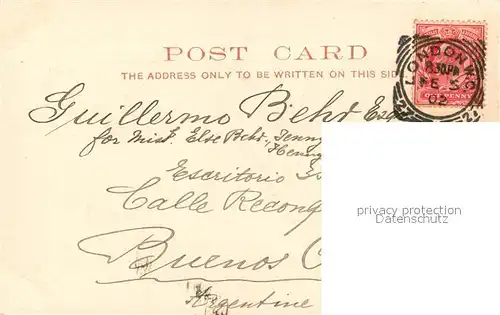 POST CARD
THE ADDRESS ONLY TO BE WRITTEN ON THIS SID
LONDON. W.C
8.30 PM
SE 5
02
ONE PENNY
22
Guillermo Behr Esq
for Miss. Else Behr, Jenny
Henny
Escritorio
Calle Reconq
Buenos
Argentine
privacy protection
Datenschutz